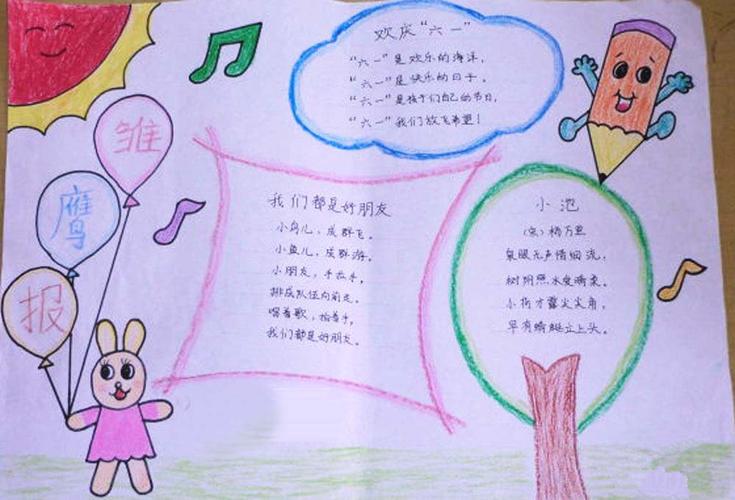 雏
鹰
报
欢庆“六一”
“六一”是欢乐的海洋，
“六一”是快乐的日子。
“六一”是孩子们自己的节日，
“六一”我们放飞希望！
我们都是好朋友
小鸟儿，成群飞。
小鱼儿，成群游。
小朋友，手拉手，
排成队伍向前走。
唱着歌，拍着手，
我们都是好朋友。
小池
（宋）杨万里
泉眼无声惜细流，
树阴照水爱晴柔。
小荷才露尖尖角，
早有蜻蜓立上头。